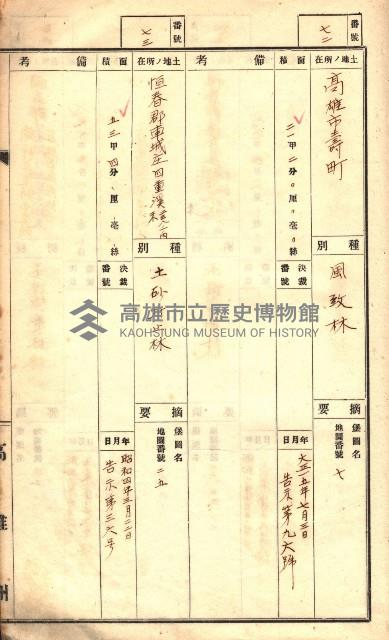 番號
七二
土地ノ所在
高雄市壽町
種別
風致林
摘要
堡圖名
地圖番號
七
面積
二一甲二分〇厘〇毫〇絲
決裁
番號
年月日
大正一五年七月三日
告示第九六號
備考
番號
七三
土地ノ所在
恒春郡車城庄四重溪
種別
土砂止林
摘要
堡圖名
地圖番號
二五
面積
五三甲四分厘毫絲
決裁
番號
年月日
昭和四年三月二二日
告示第三六号
備考
高雄州
高雄市立歷史博物館
KAOHSIUNG MUSEUM OF HISTORY